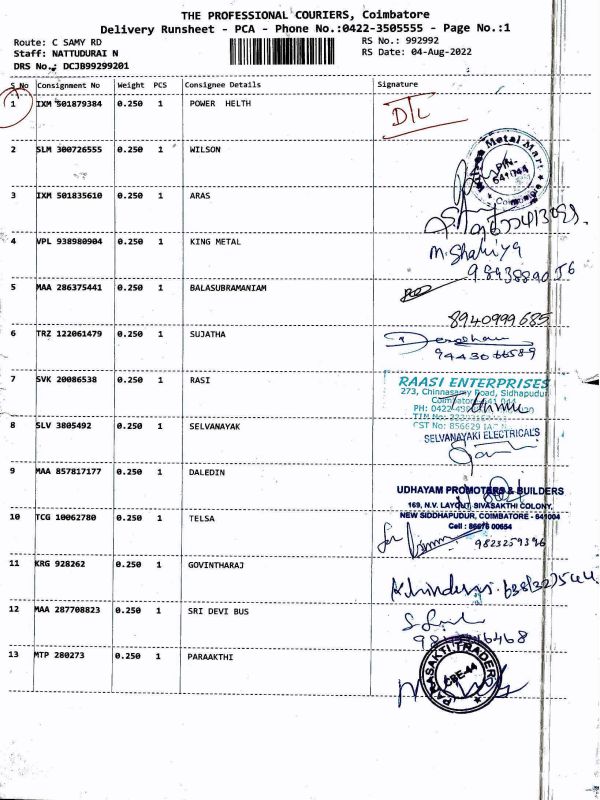 THE PROFESSIONAL COURIERS, Coimbatore
Delivery Runsheet - PCA - Phone No.:0422-3505555 - Page No.:1
Route: C SAMY RD RS No.: 992992
Staff: NATTUDURAI N RS Date: 04-Aug-2022
DRS No.: DCJB99299201
S No Consignment No Weight PCS Consignee Details Signature
1 IXM 501879384 0.250 1 POWER HELTH
2 SLM 300726555 0.250 1 WILSON
Metal Mart
PIN-
641044
Coimbatore
3 IXM 501835610 0.250 1 ARAS
4 VPL 938980904 0.250 1 KING METAL
M. Shakiya
5 MAA 286375441 0.250 1 BALASUBRAMANIAM
8940999685
6 TRZ 122061479 0.250 1 SUJATHA
9443066589
7 SVK 20086538 0.250 1 RASI
RAASI ENTERPRISES
273, Chinnasamy Road, Sidhapudur
Coimbatore
PH: 0422
CST No: 856629
8 SLV 3805492 0.250 1 SELVANAYAK
SELVANAYAKI ELECTRICALS
9 MAA 857817177 0.250 1 DALEDIN
UDHAYAM PROMOTERS & BUILDERS
169, N.V. LAYOUT, SIVASAKTHI COLONY,
NEW SIDDHAPUDUR, COIMBATORE - 641004
Cell : 86676 00654
10 TCG 10062780 0.250 1 TELSA
9823259396
11 KRG 928262 0.250 1 GOVINTHARAJ
12 MAA 287708823 0.250 1 SRI DEVI BUS
13 MTP 280273 0.250 1 PARAAKTHI
PARASAKTI TRADERS
CBE-44